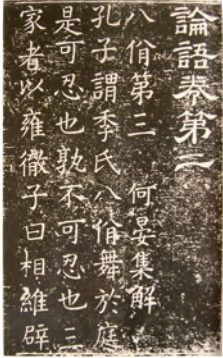 論語卷第二
八佾第三 何晏集解
孔子謂季氏八佾舞於庭
是可忍也孰不可忍也三
家者以雍徹子曰相維辟